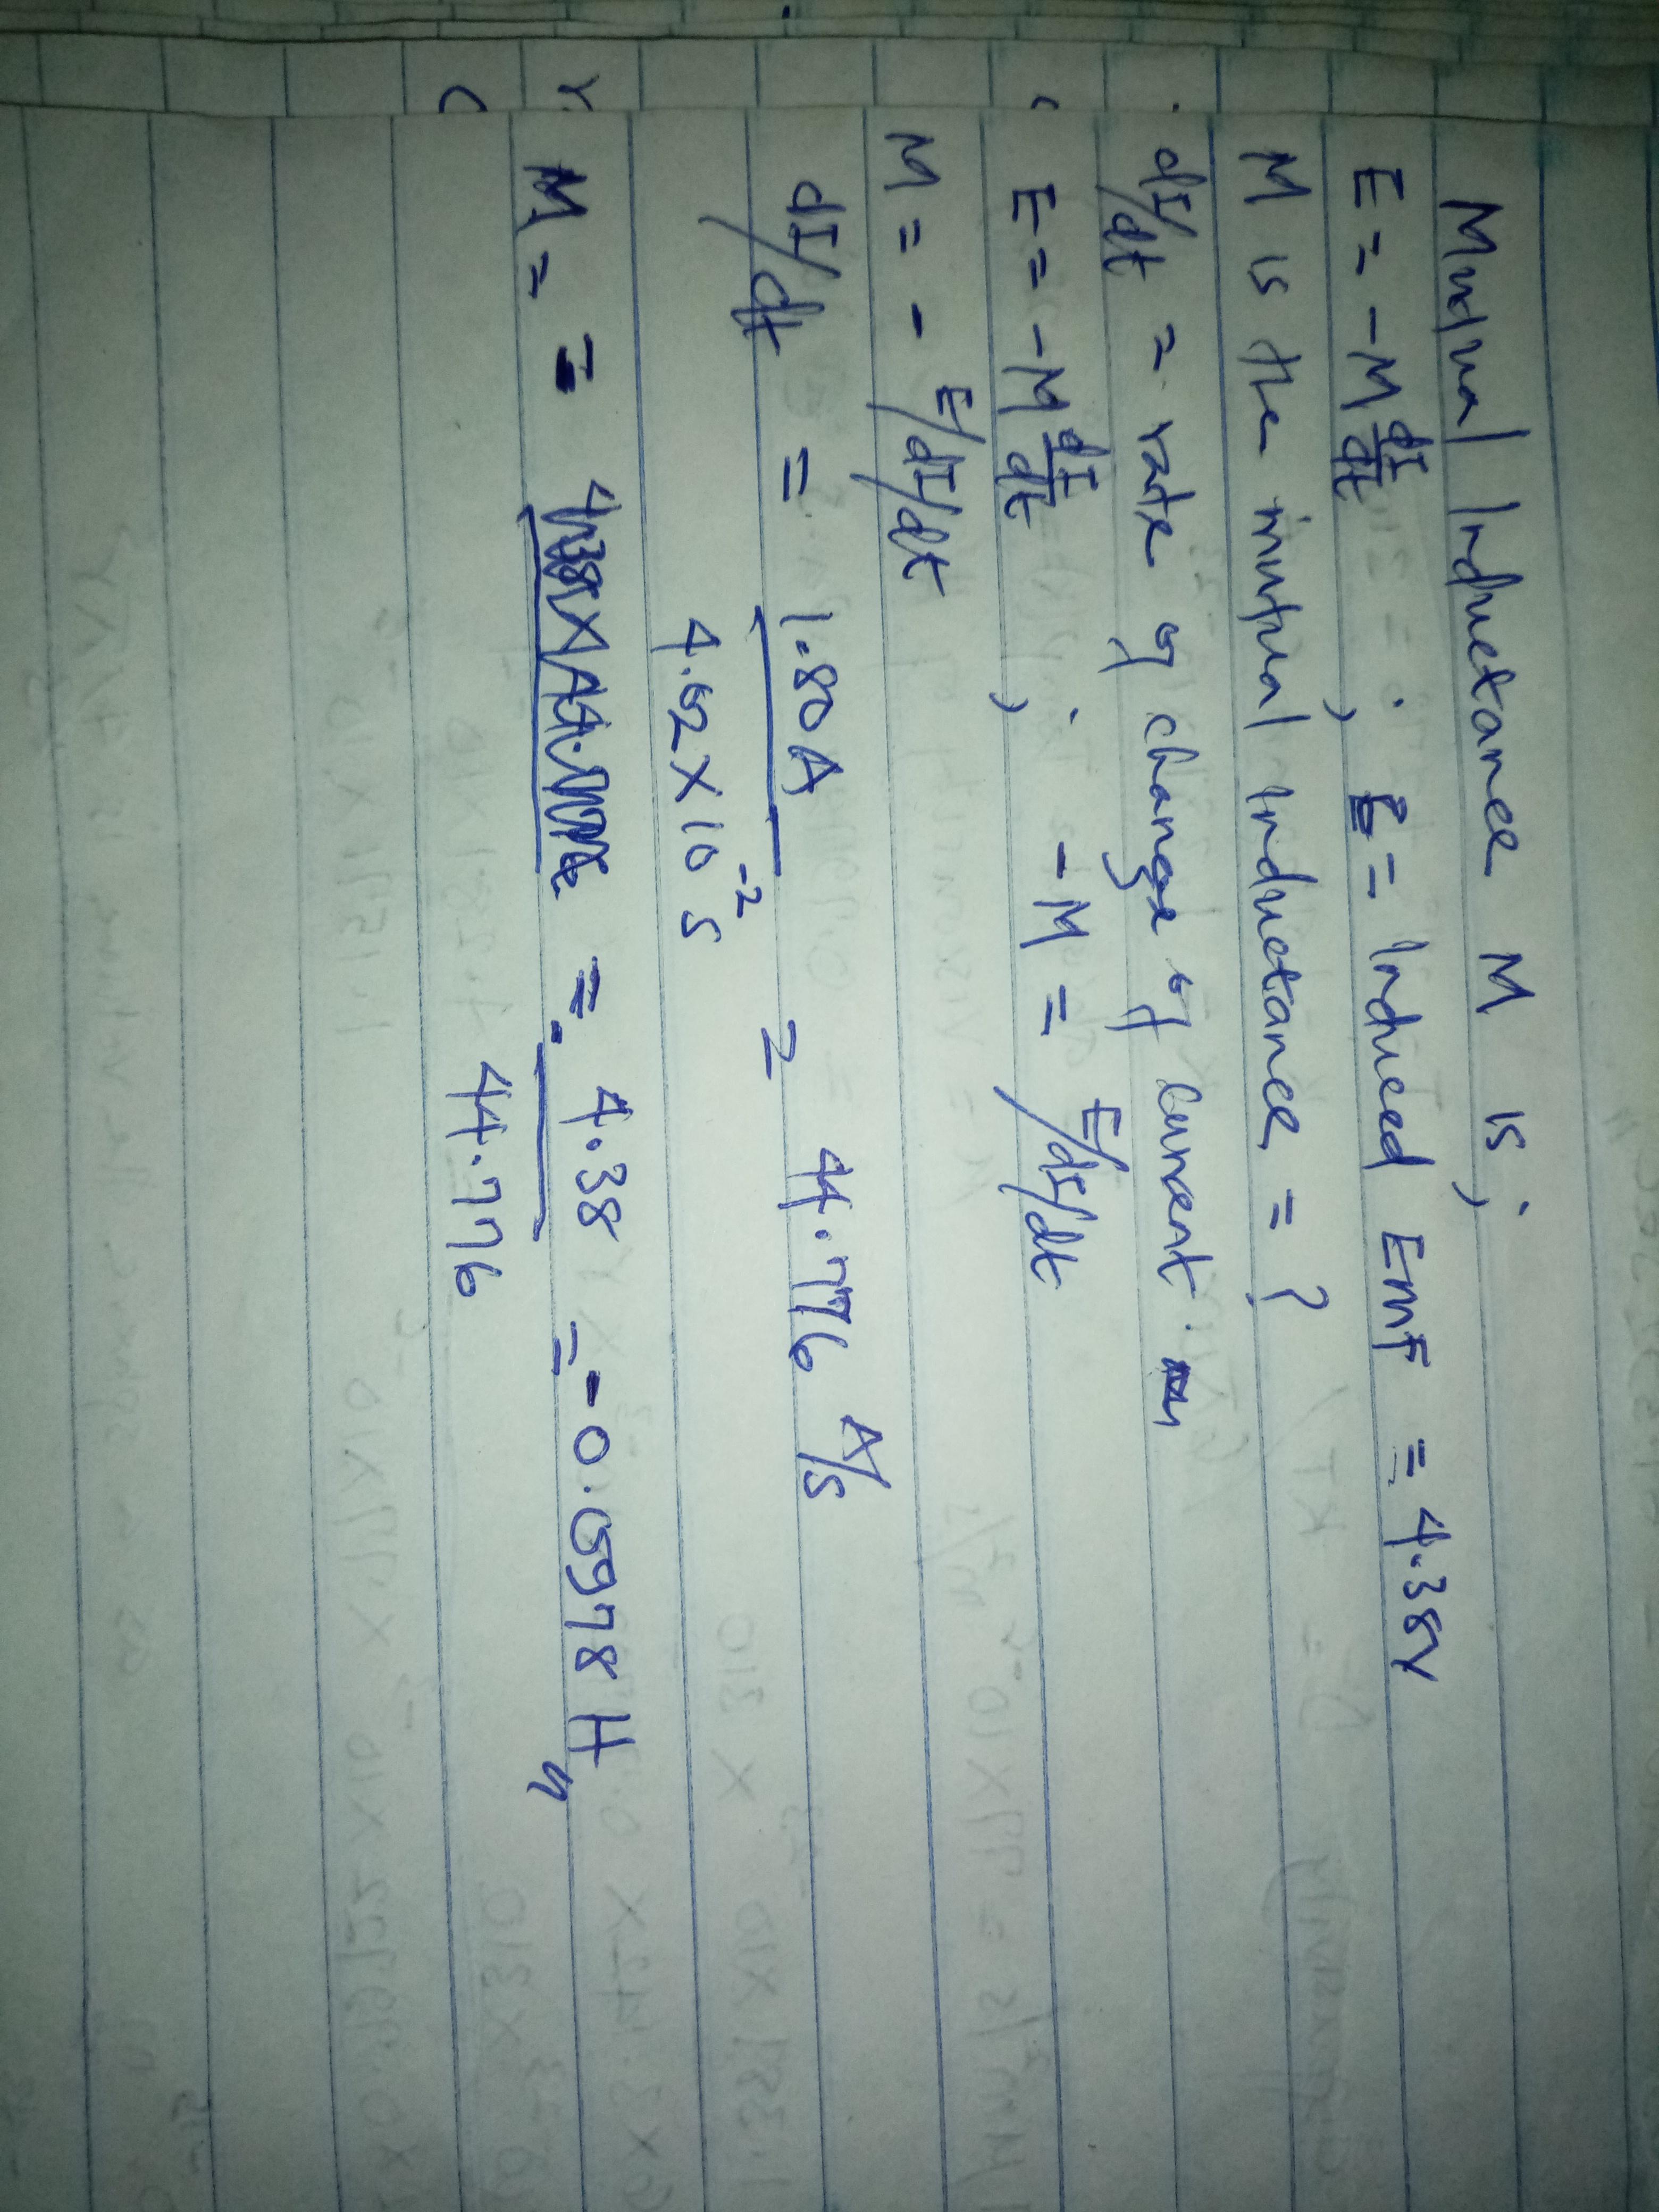 Mutual Inductance M is;
E = -M dI/dt ; E = Induced EMF = 4.38V
M is the mutual Inductance = ?
dI/dt = rate of change of current.
E = -M dI/dt ; -M = E/dI/dt
M = - E/dI/dt
dI/dt = 1.80A / 4.02 X 10^-2 s = 44.776 A/s
M = = = 4.38 / 44.776 = -0.0978 H